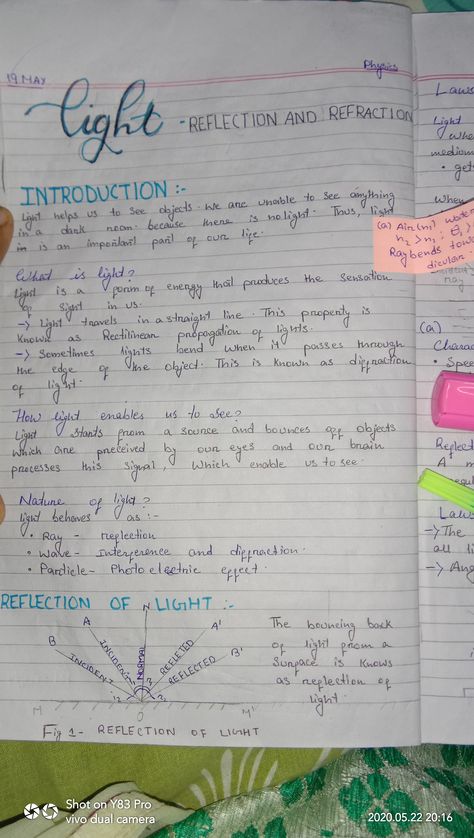 19 MAY
Physics
Light - REFLECTION AND REFRACTION
INTRODUCTION :-
Light helps us to see objects. We are unable to see anything
in a dark room because there is no light. Thus, light
is an important part of our life.
What is light?
Light is a form of energy that produces the sensation
of sight in us.
→ Light travels in a straight line. This property is
known as Rectilinear propagation of lights.
→ Sometimes lights bend when it passes through
the edge of the object. This is known as diffraction
of light.
How light enables us to see?
Light starts from a source and bounces off objects
which are preceived by our eyes and our brain
processes this signal, which enable us to see.
Nature of light?
light behaves as :-
• Ray - reflection
• Wave - Interference and diffraction.
• Particle - Photoelectric effect.
REFLECTION OF LIGHT :-
N
A
A'
B
B'
INCIDENT
INCIDENT
NORMAL
REFLETED
REFLECTED
M
O
M'
The bouncing back
of light from a
surface is knows
as reflection of
light.
Fig 1- REFLECTION OF LIGHT
Laws
Light
Whe
medium
• get
When
(a) Air(n1) Wate
n2 > n1 ; θ1 >
Ray bends tow
dicular.
ray
(a)
Charac
• Spee
Reflect
A m
regul
Laws
→ The
all li
→ Ang
Shot on Y83 Pro
vivo dual camera
2020.05.22 20:16